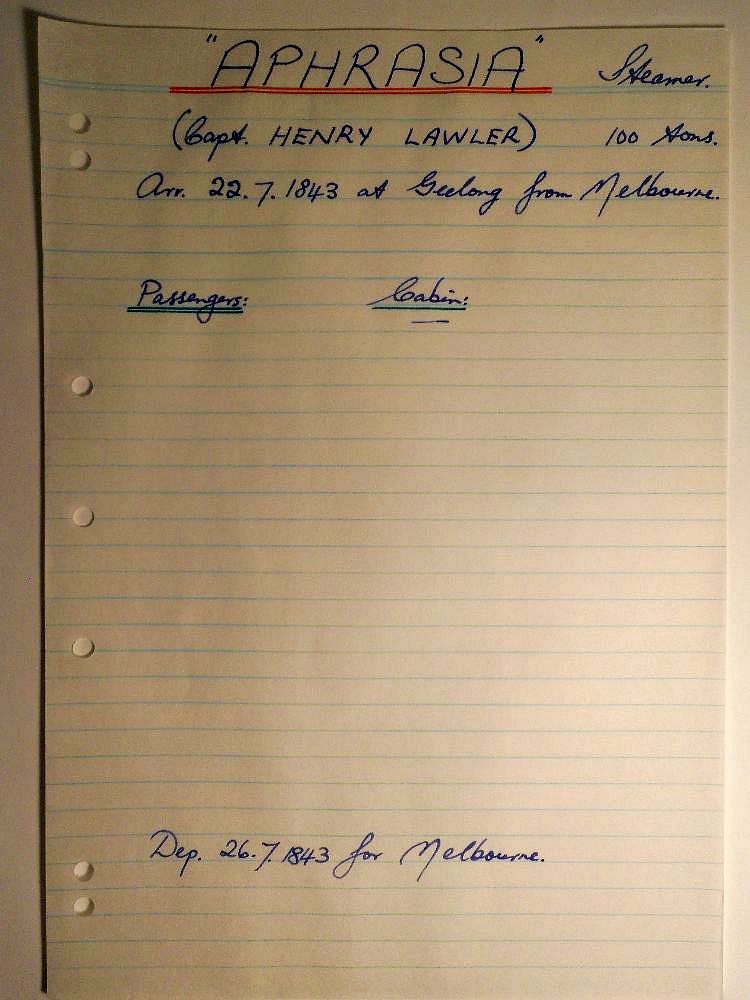 "APHRASIA" Steamer.
(Capt. HENRY LAWLER) 100 tons.
Arr. 22.7.1843 at Geelong from Melbourne.
Passengers: Cabin:
—
Dep. 26.7.1843 for Melbourne.